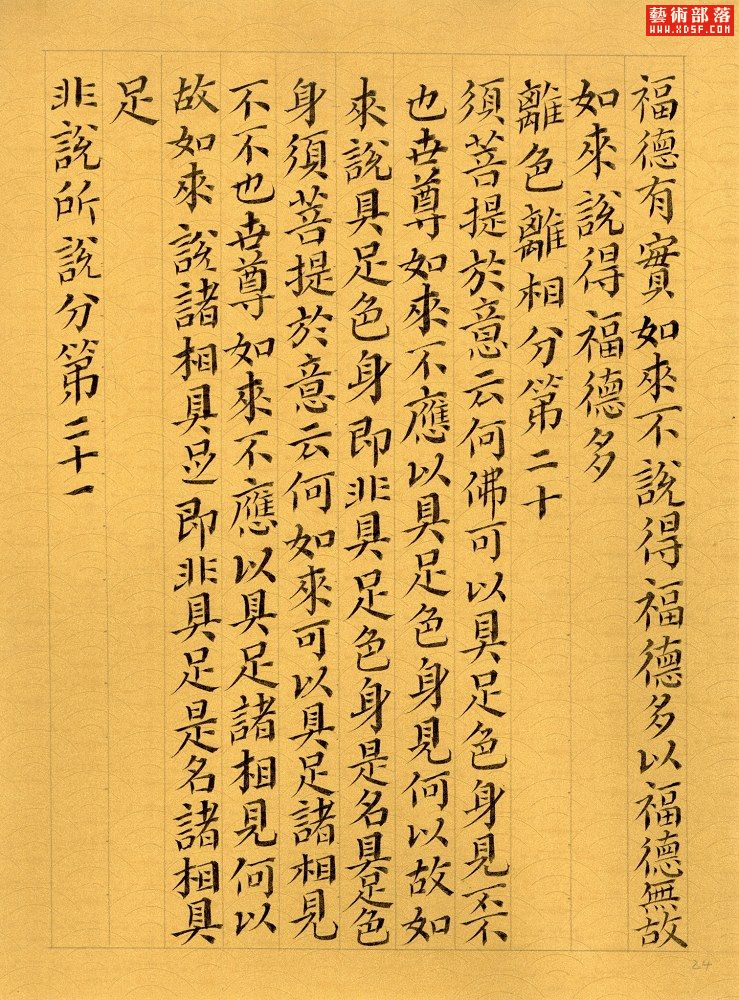 藝術部落
WWW.XDSF.COM
福德有實如來不說得福德多以福德無故
如來說得福德多
離色離相分第二十
須菩提於意云何佛可以具足色身見不不
也世尊如來不應以具足色身見何以故如
來說具足色身即非具足色身是名具足色
身須菩提於意云何如來可以具足諸相見
不不也世尊如來不應以具足諸相見何以
故如來說諸相具足即非具足是名諸相具
足
非說所說分第二十一
24